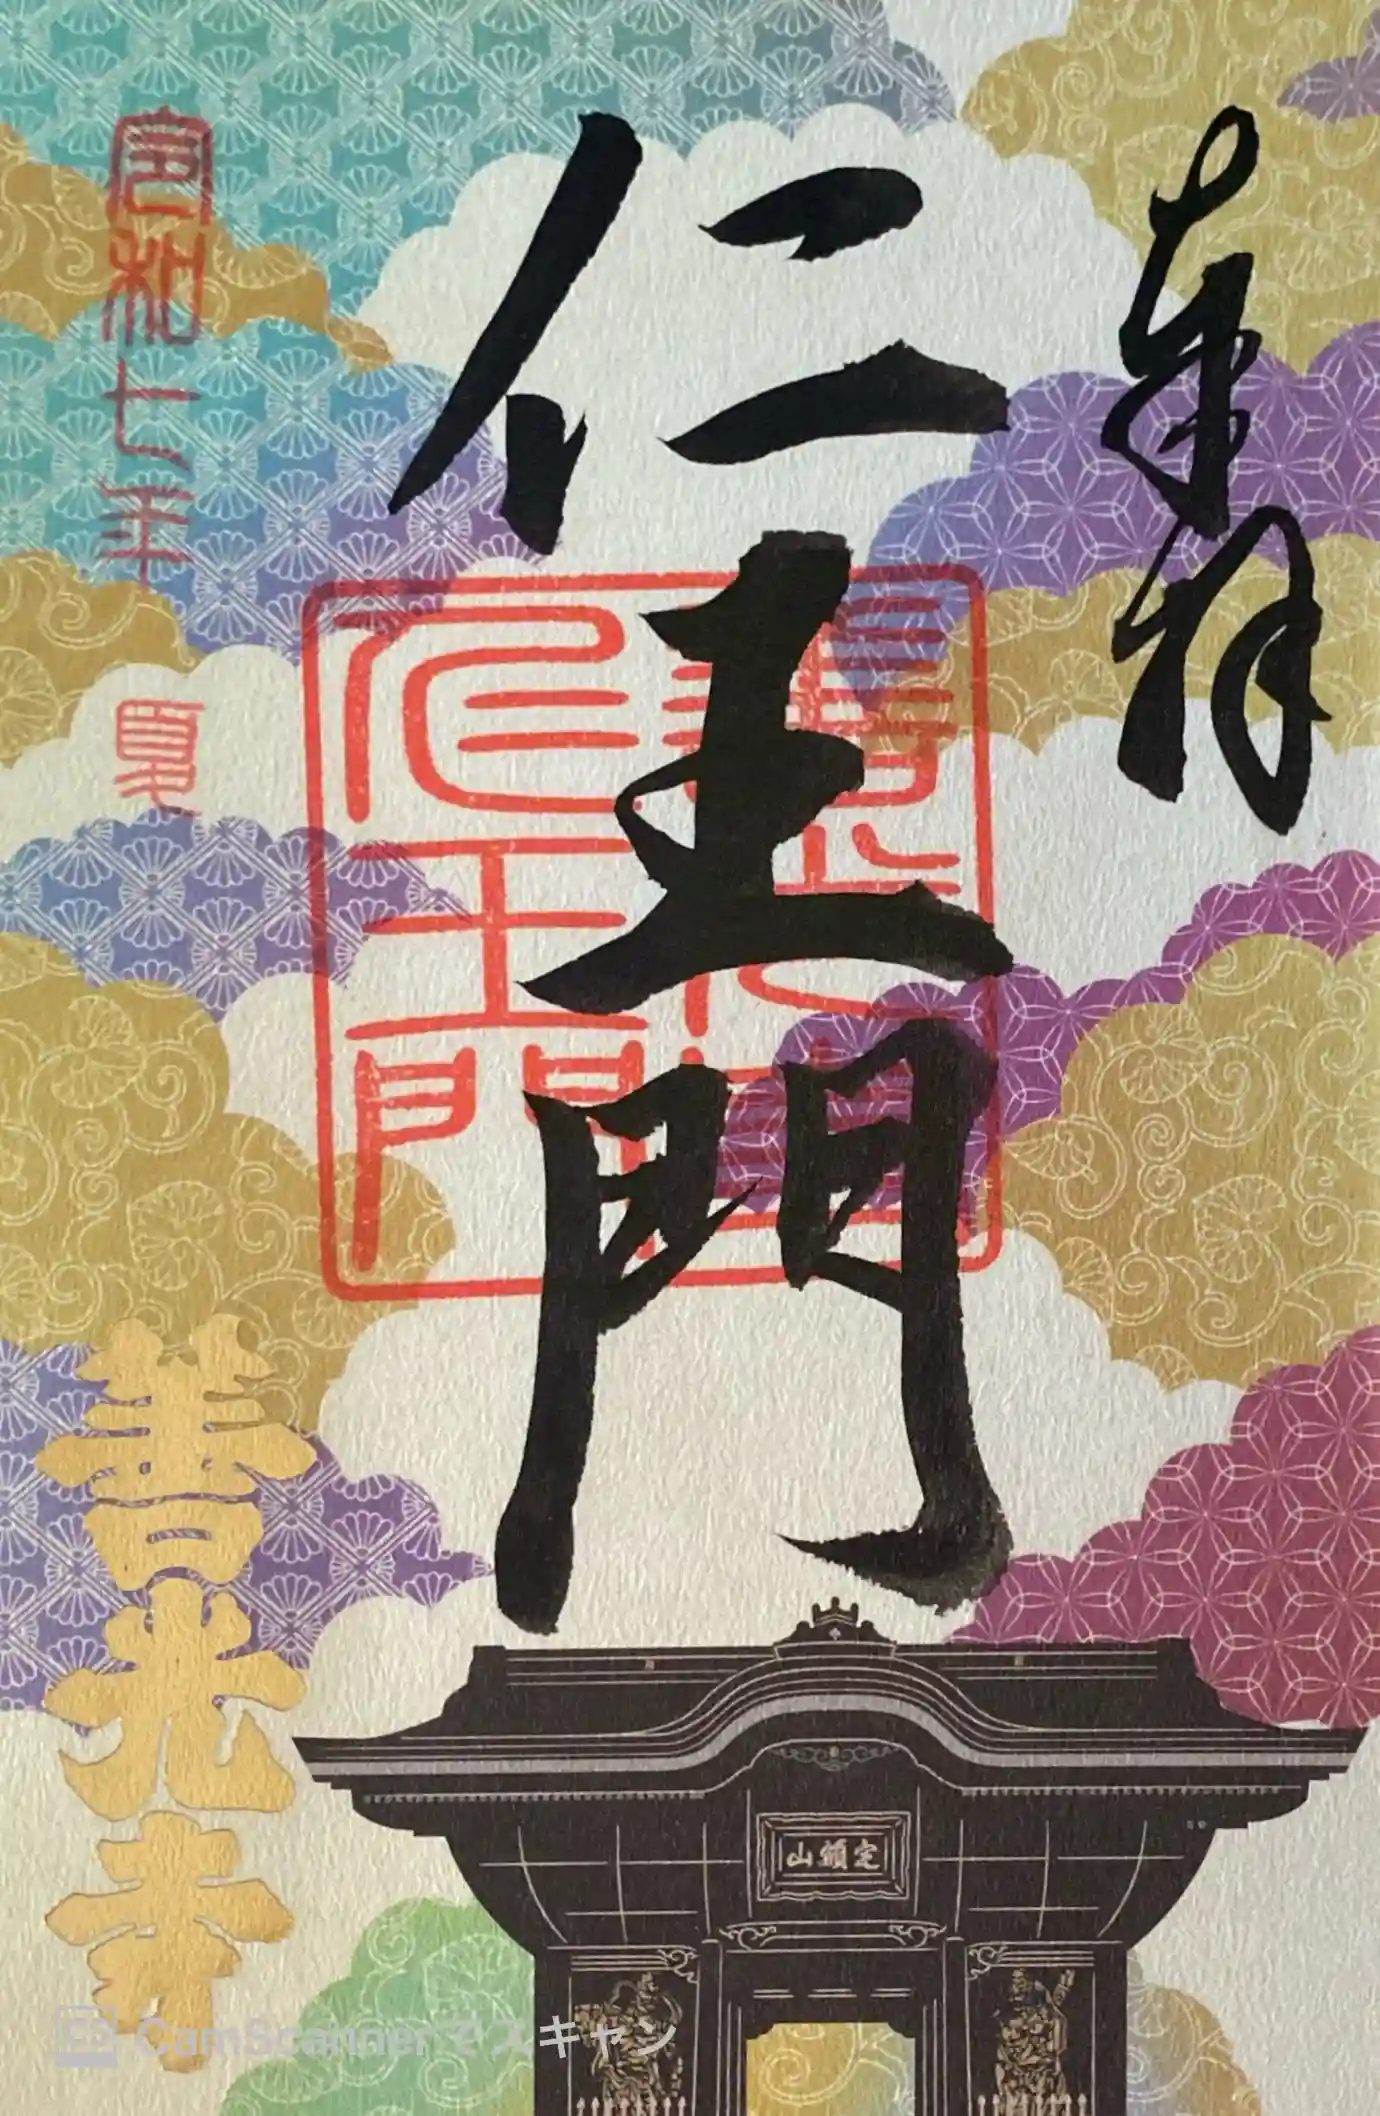 奉拝
仁王門
仁王門
令和七年
夏
善光寺
定額山
CamScannerでスキャン